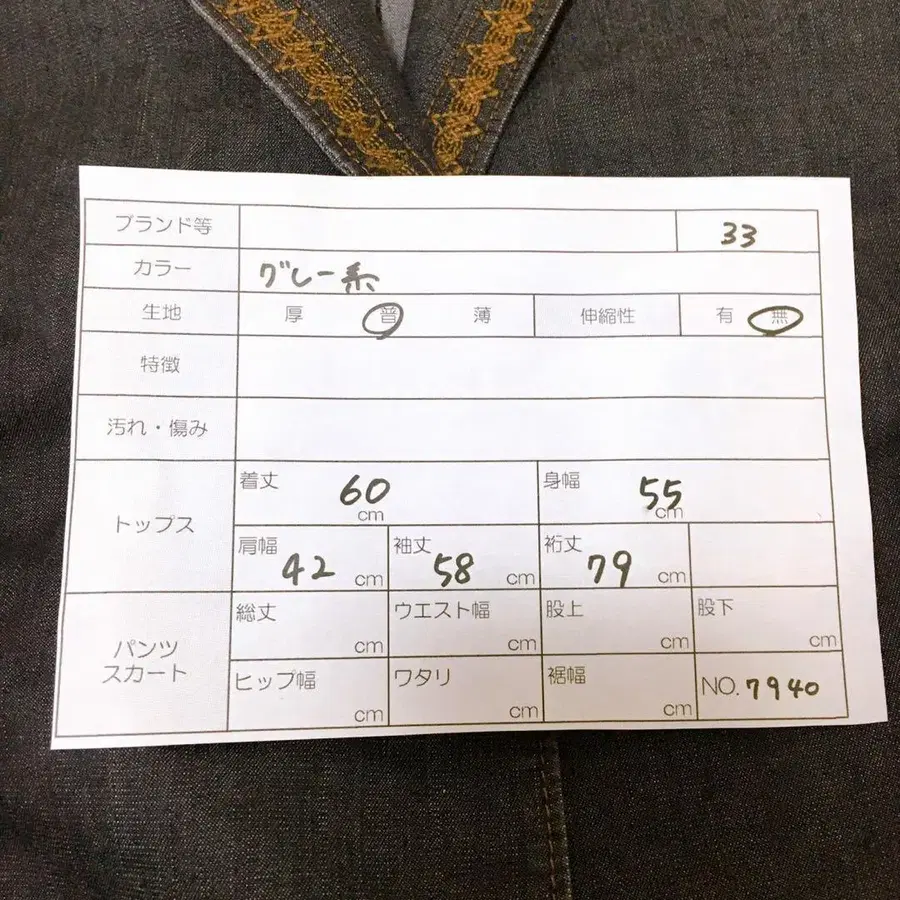 ブランド等 33
カラー グレー系
生地 厚 普 薄 伸縮性 有 無
特徴
汚れ・傷み
トップス
着丈 60 cm 身幅 55 cm
肩幅 42 cm 袖丈 58 cm 裄丈 79 cm
パンツ
スカート
総丈 cm ウエスト幅 cm 股上 cm 股下 cm
ヒップ幅 cm ワタリ cm 裾幅 cm NO.7940